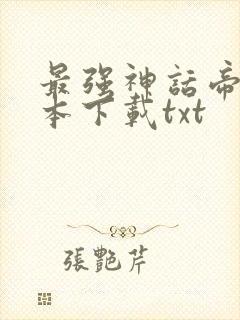 最强神話帝
本下載txt
張艷芹